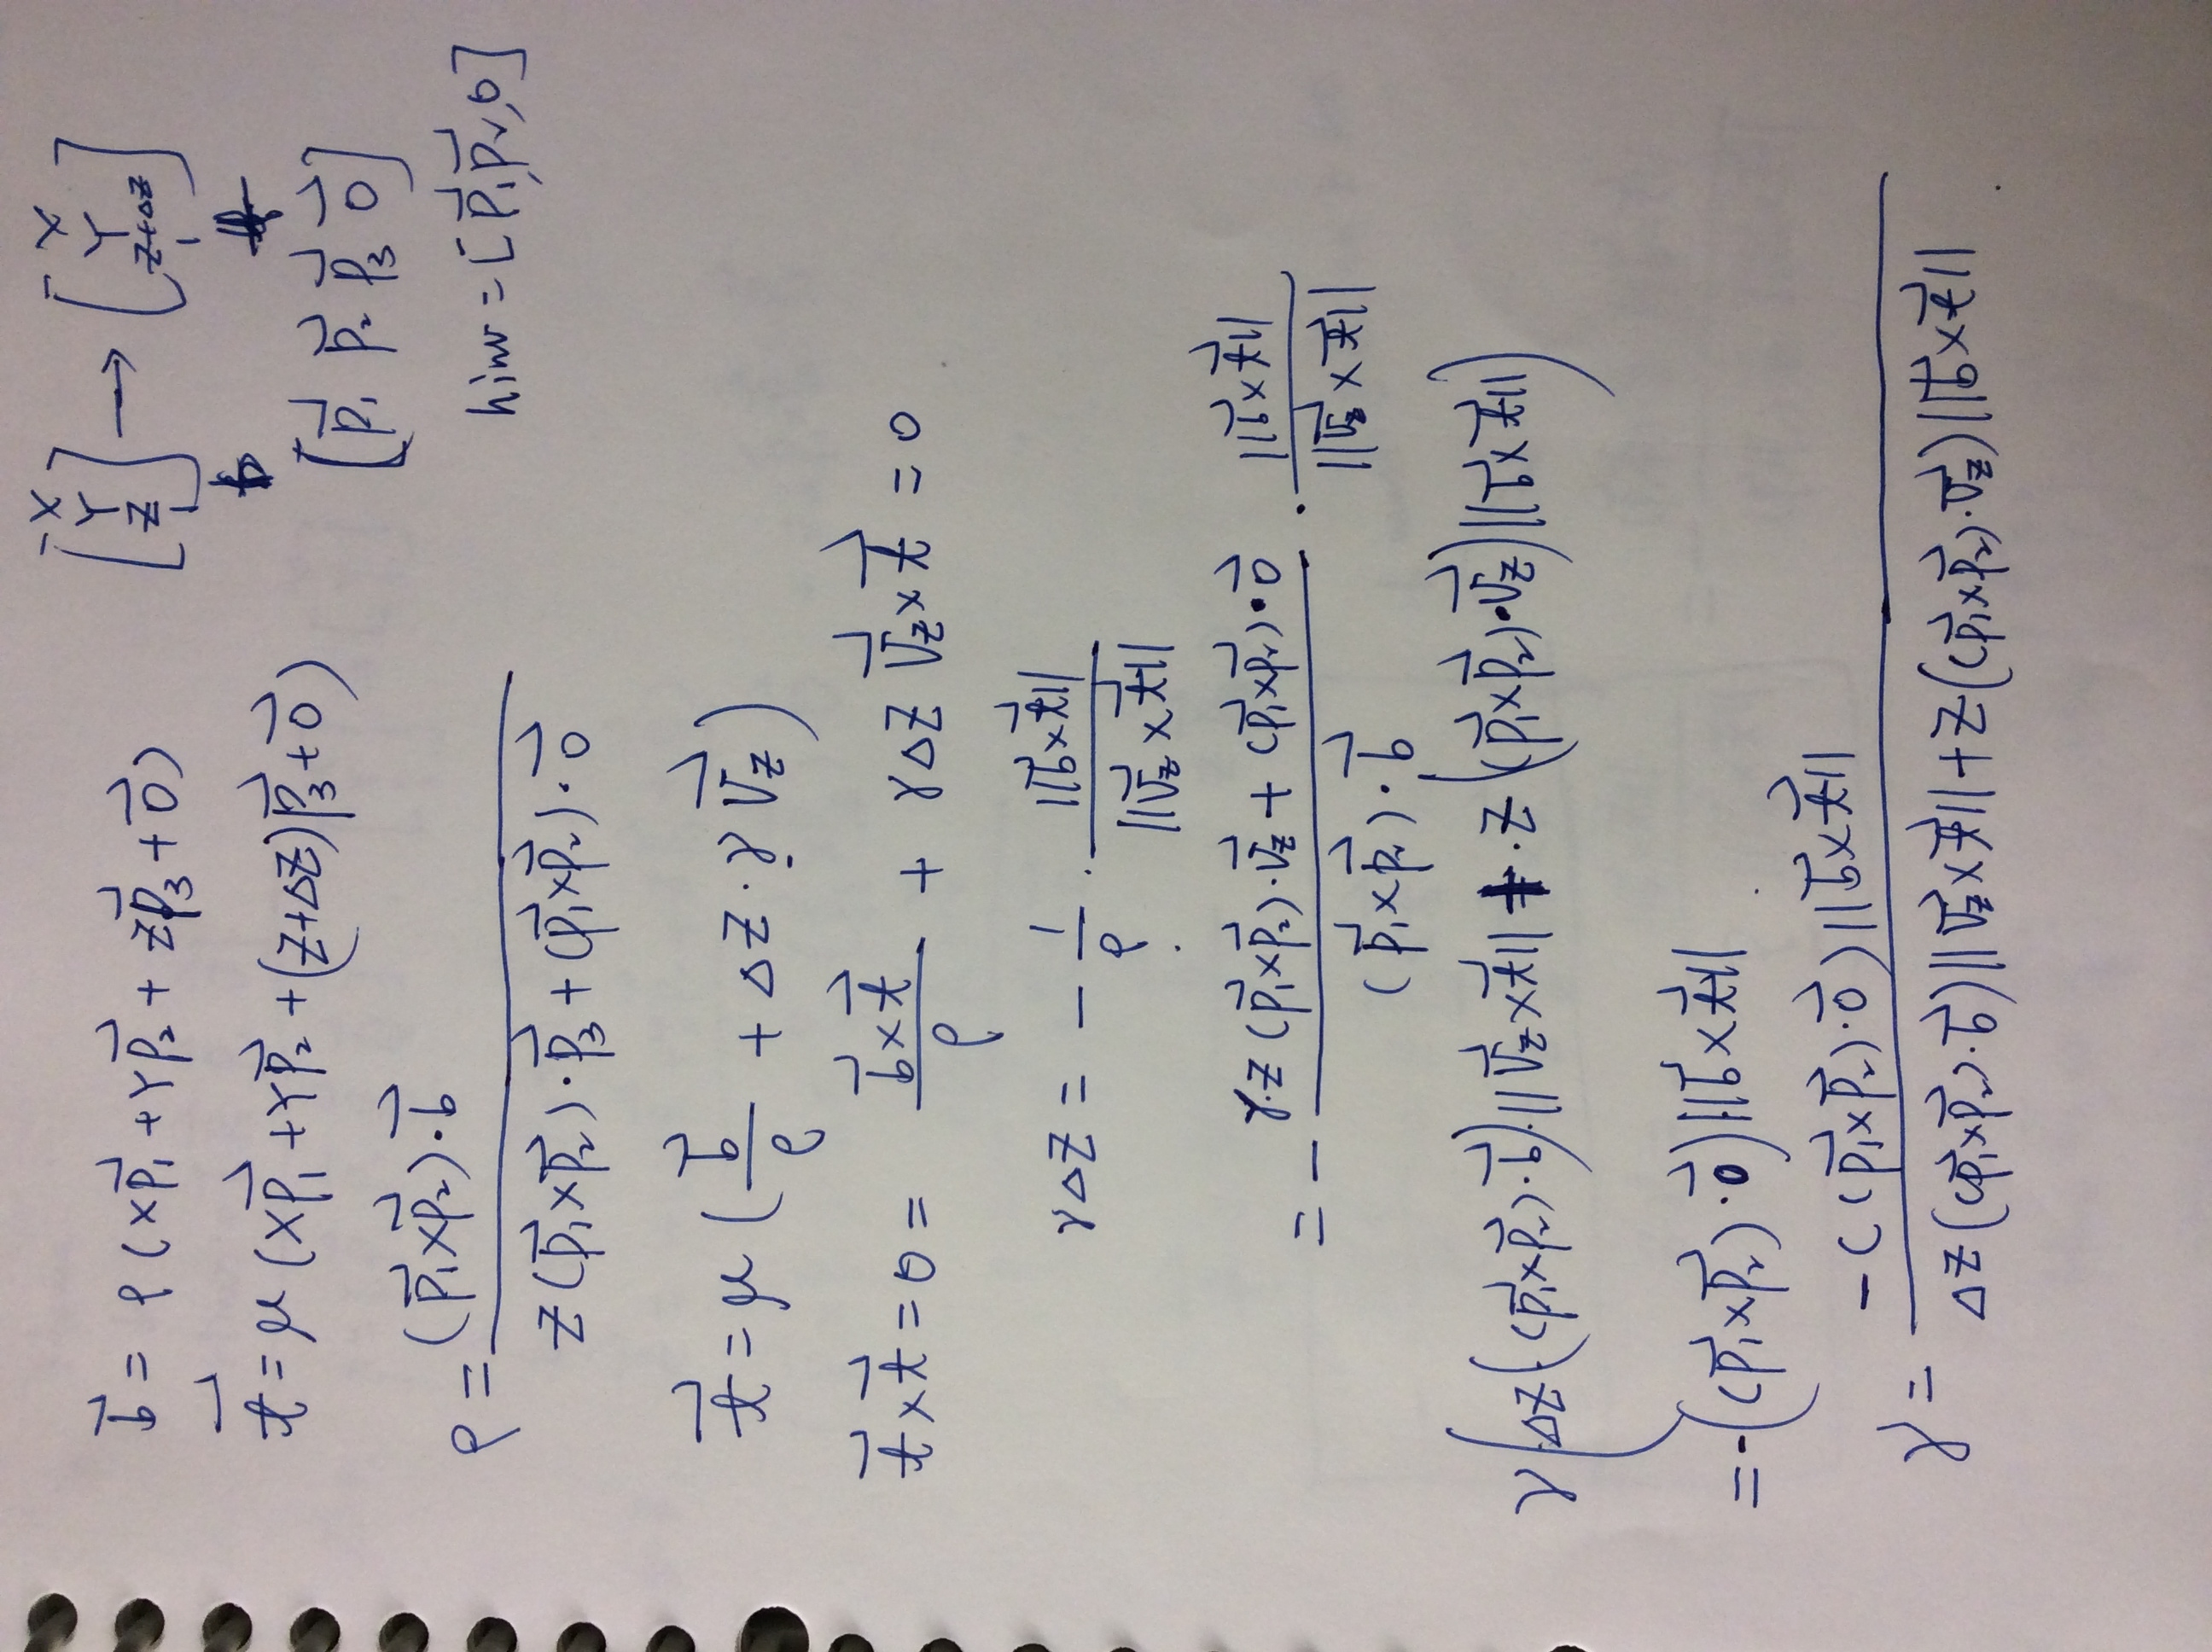 b⃗ = ρ(Xp⃗₁ + Yp⃗₂ + Zp⃗₃ + o⃗)
t⃗ = μ(Xp⃗₁ + Yp⃗₂ + (Z+ΔZ)p⃗₃ + o⃗)
[X Y Z 1] → [X Y Z+ΔZ 1]
b t
[p⃗₁ p⃗₂ p⃗₃ o⃗]
hinv = [p⃗₁, p⃗₂, o]
ρ = (p⃗₁×p⃗₂)·b⃗ / (Z(p⃗₁×p⃗₂)·p⃗₃ + (p⃗₁×p⃗₂)·o⃗)
t⃗ = μ(b⃗/ρ + ΔZ·γV⃗_Z)
t⃗×t⃗ = 0 = (b⃗×t⃗)/ρ + γΔZ V⃗_Z×t⃗ = 0
γΔZ = −1/ρ · ||b⃗×t⃗|| / ||V⃗_Z×t⃗||
= − (γ·Z(p⃗₁×p⃗₂)·V⃗_Z + (p⃗₁×p⃗₂)·o⃗) / ((p⃗₁×p⃗₂)·b⃗) · ||b⃗×t⃗|| / ||V⃗_Z×t⃗||
γ(ΔZ((p⃗₁×p⃗₂)·b⃗)·||V⃗_Z×t⃗|| + ·Z((p⃗₁×p⃗₂)·V⃗_Z)||b⃗×t⃗||)
= −((p⃗₁×p⃗₂)·o⃗)||b⃗×t⃗||
γ = −((p⃗₁×p⃗₂)·o⃗)||b⃗×t⃗|| / (ΔZ((p⃗₁×p⃗₂)·b⃗)||V⃗_Z×t⃗|| + Z((p⃗₁×p⃗₂)·V⃗_Z)||b⃗×t⃗||)